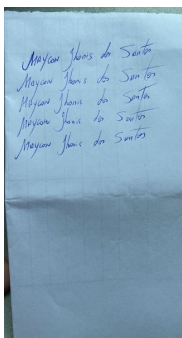 Maycon Jhonis dos Santos
Maycon Jhonis dos Santos
Maycon Jhonis dos Santos
Maycon Jhonis dos Santos
Maycon Jhonis dos Santos